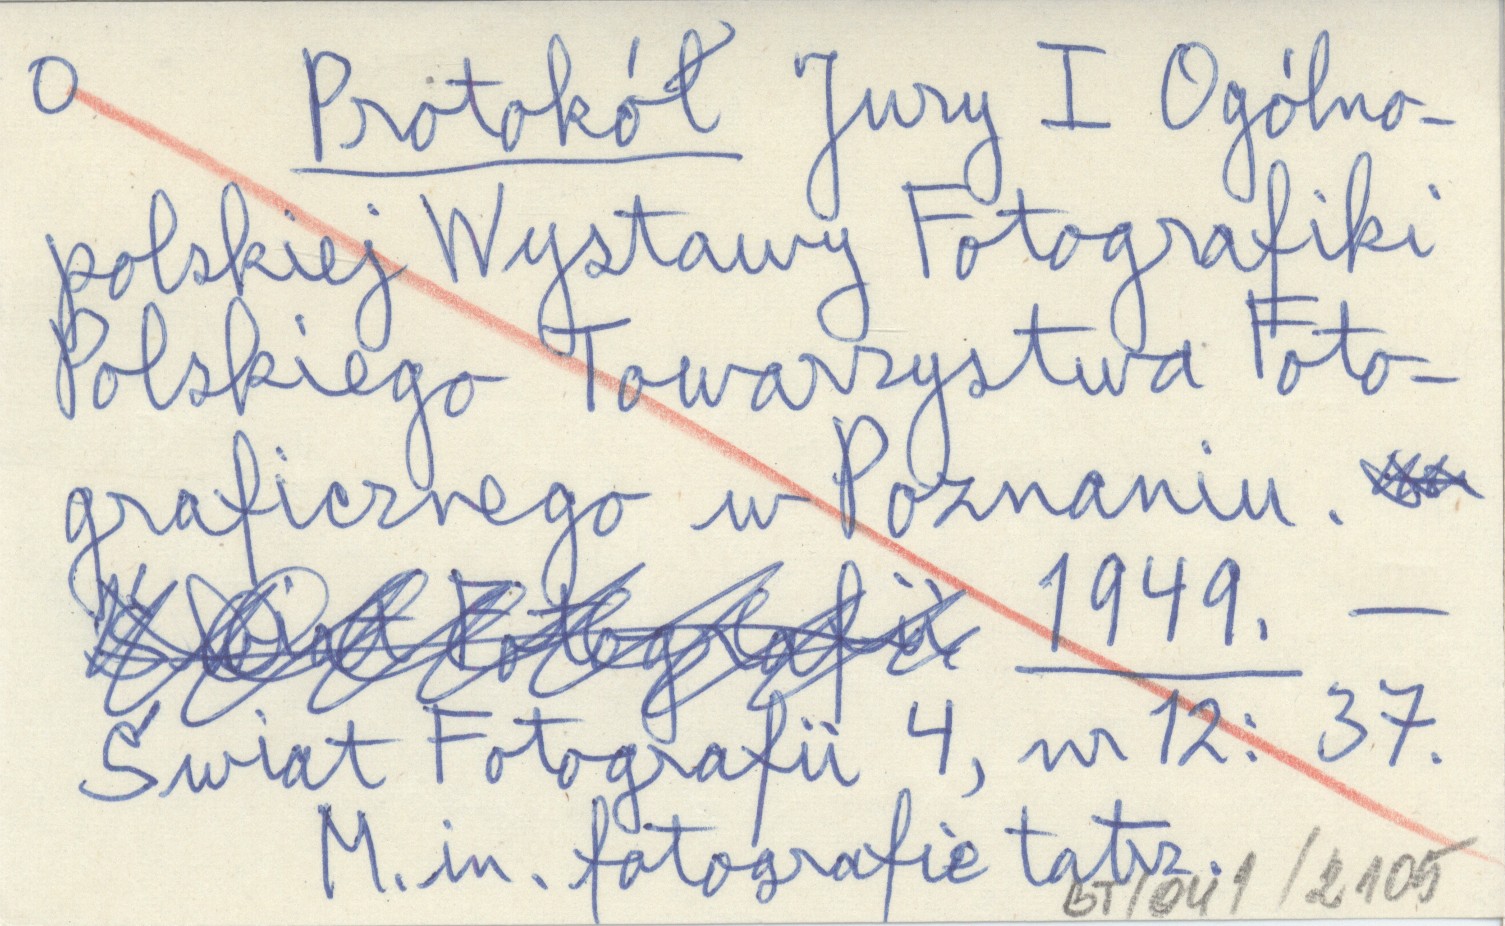 O Protokół Jury I Ogólno-
polskiej Wystawy Fotografiki
Polskiego Towarzystwa Foto-
graficznego w Poznaniu.
Świat Fotografii 1949. —
Świat Fotografii 4, nr 12: 37.
M. in. fotografie tatrz.
BT/041/2105